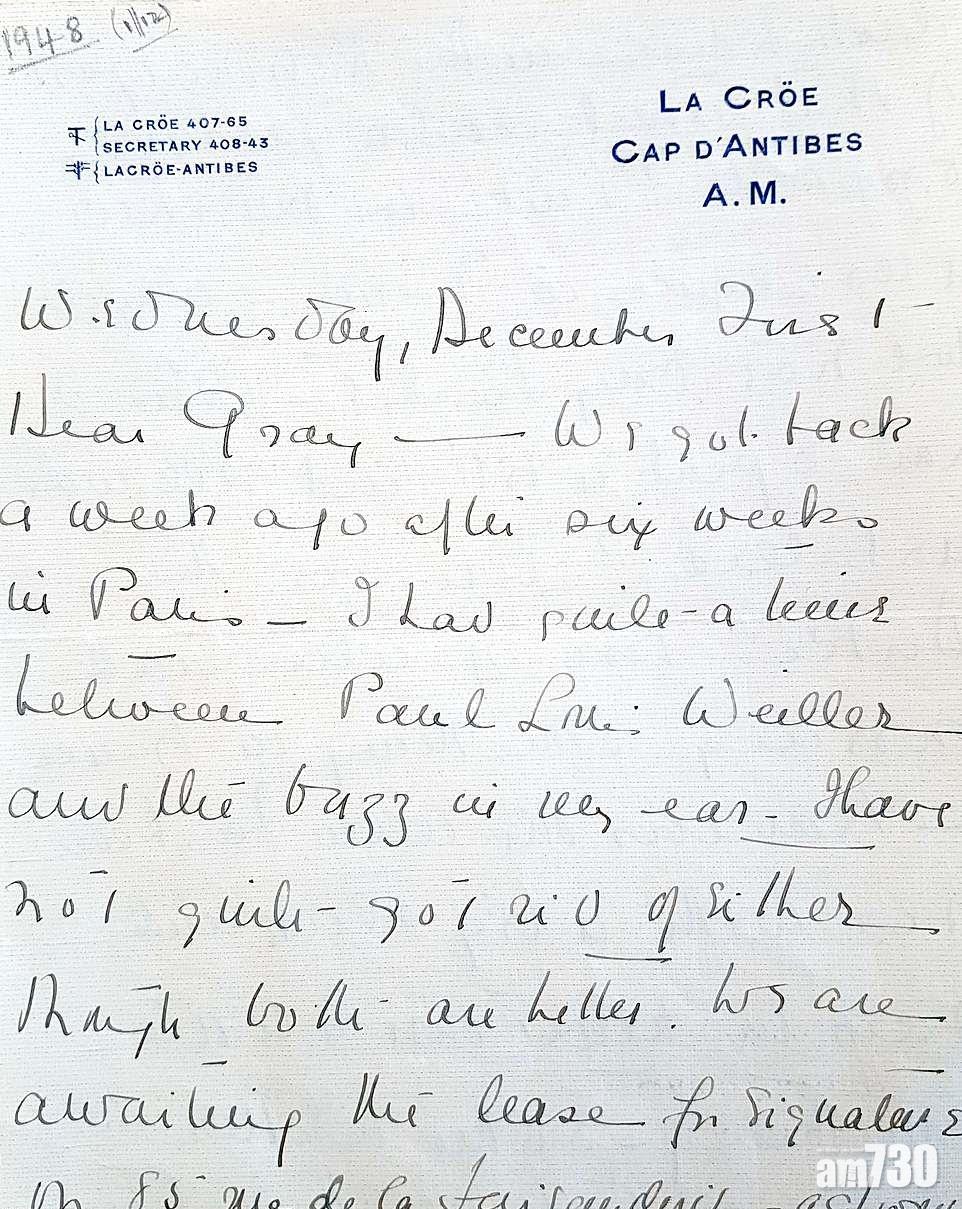 1948 (1/12)
LA CRÖE 407-65
SECRETARY 408-43
LACRÖE-ANTIBES
LA CRÖE
CAP D'ANTIBES
A. M.
Wednesday, December First
Dear Gray — We got back
a week ago after six weeks
in Paris – I had quite a time
between Paul Louis Weiller
and the buzz in my ear – I have
not quite got rid of either
though both are better. We are
awaiting the lease for signature
on 85 rue de la Faisanderie
am730